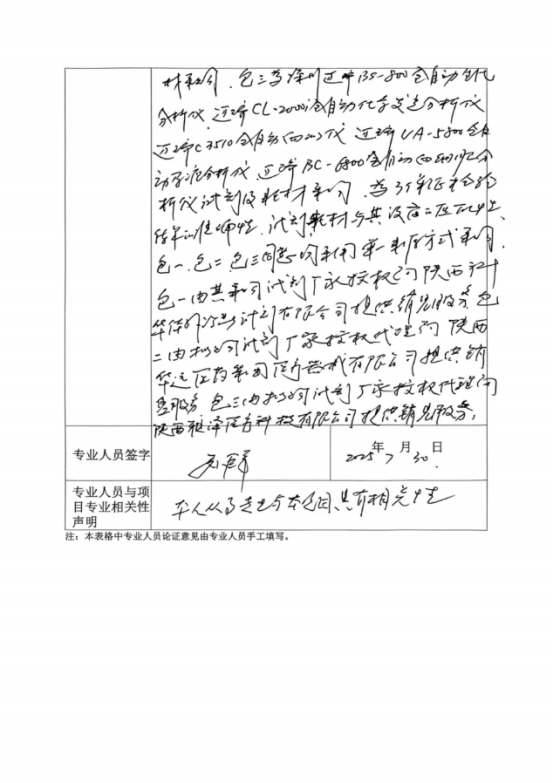 材采购、包三为深圳迈瑞BS-800全自动生化
分析仪、迈瑞CL-2000i全自动化学发光分析仪
迈瑞C3510全自动 仪 迈瑞UA-5800全自
动尿液分析仪 迈瑞BC-6800全自动血细胞分
析仪试剂及耗材采购。为了保证检验
结果准确性，试剂耗材与其设备 、
包一、包二、包三同意均采用单一来源方式采购。
包一由其采购试剂厂家授权 陕西
试剂有限公司提供销售服务 包
二由 试剂厂家授权代理 陕西
医疗器械有限公司提供销
售服务 包三由 试剂厂家授权代理
陕西 泽医疗科技有限公司提供销售服务。
专业人员签字
2025年7月30日
专业人员与项
目专业相关性
声明
本人从事专业与本项目具有相关性
注：本表格中专业人员论证意见由专业人员手工填写。